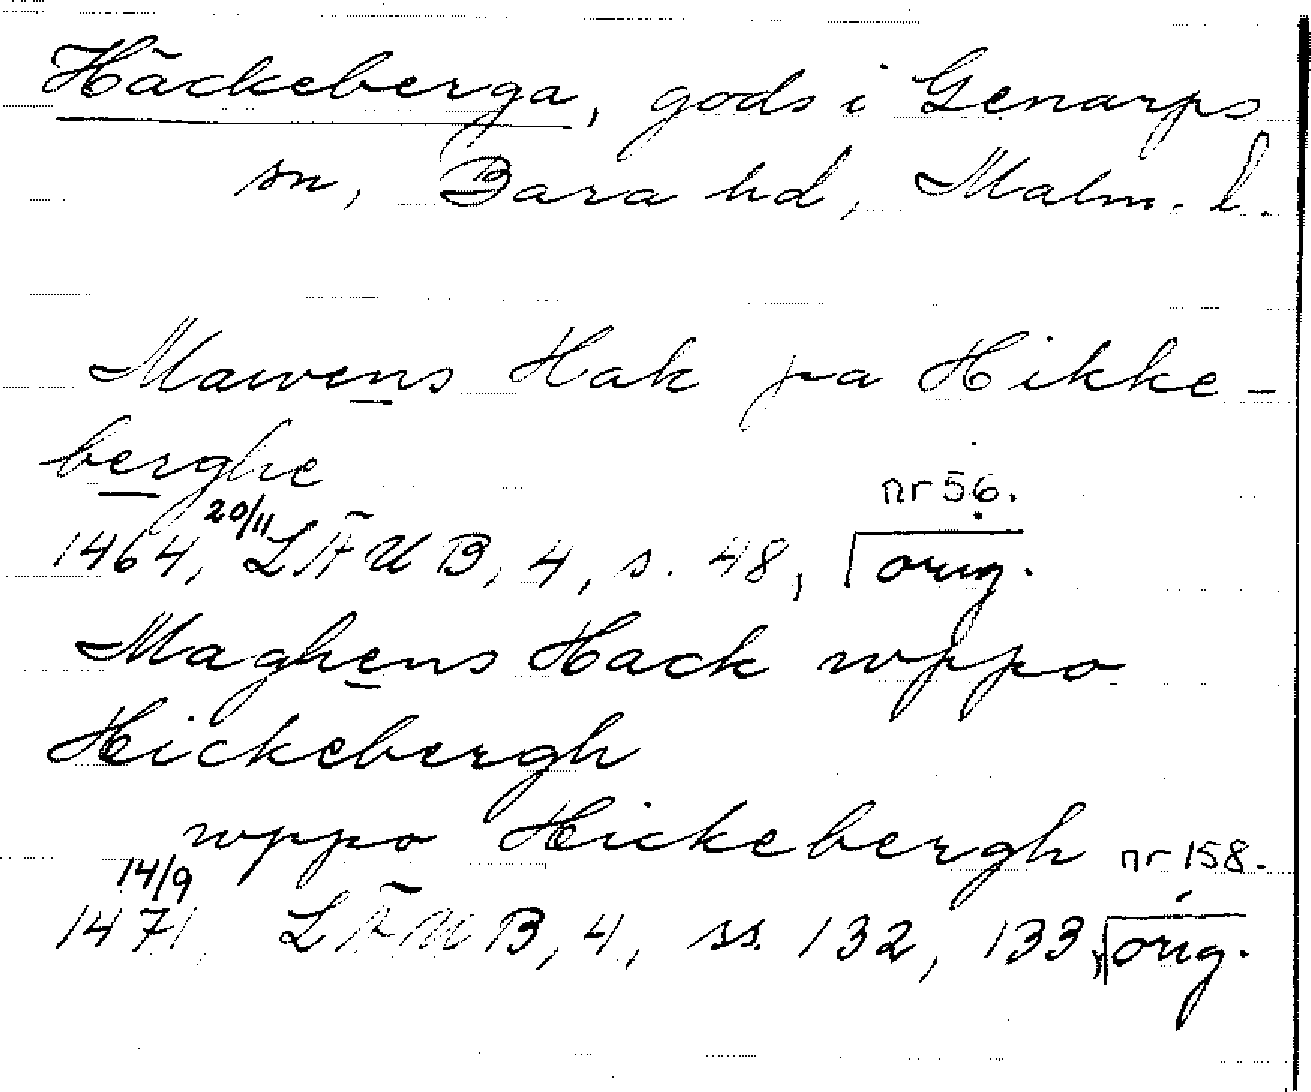 Häckeberga, gods i Genarps
sn, Bara hd, Malm. l.
Mawens Hak pa Hikke-
berghe
nr 56.
20/11
1464, LÄUB, 4, s. 48, orig.
Maghens Hack wppo
Hickebergh
wppo Hickebergh nr 158.
14/9
1471, LÄUB, 4, ss. 132, 133, orig.